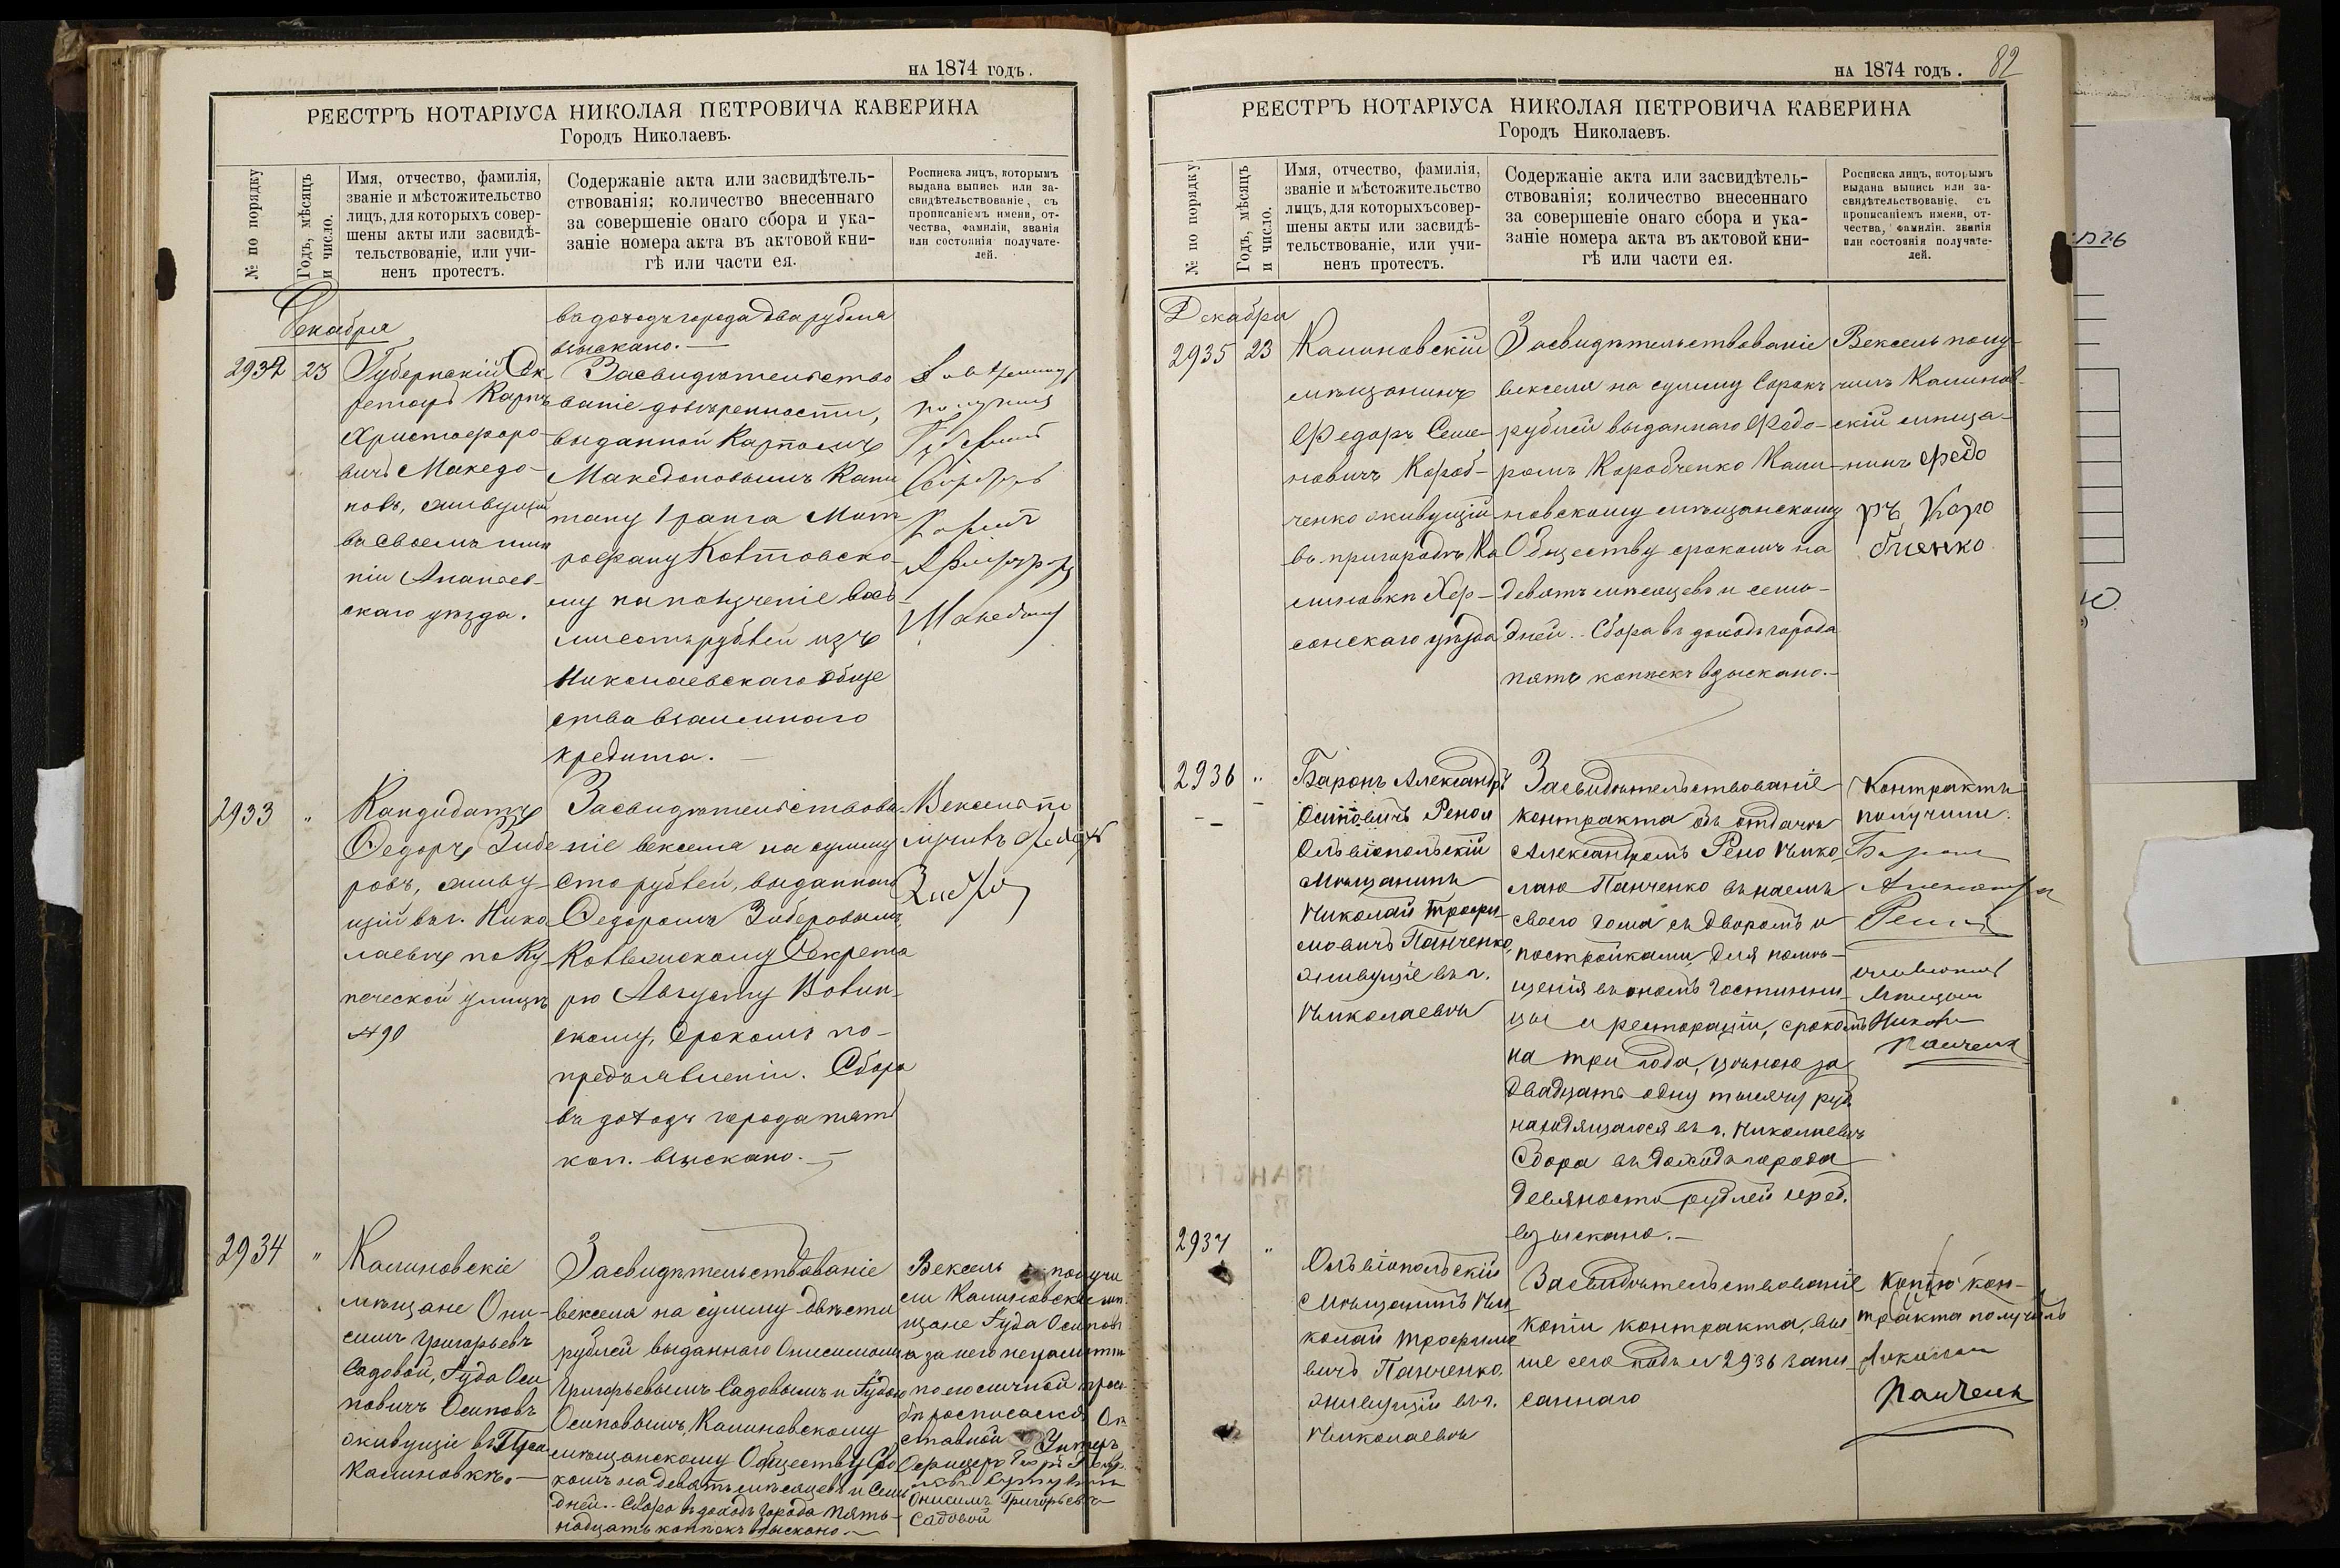 на 1874 годъ.
РЕЕСТРЪ НОТАРІУСА НИКОЛАЯ ПЕТРОВИЧА КАВЕРИНА
Городъ Николаевъ.
№ по порядку
Годъ, мѣсяцъ
и число.
Имя, отчество, фамилія,
званіе и мѣстожительство
лицъ, для которыхъ совер-
шены акты или засвидѣ-
тельствованіе, или учи-
ненъ протестъ.
Содержаніе акта или засвидѣтель-
ствованія; количество внесеннаго
за совершеніе онаго сбора и ука-
заніе номера акта въ актовой кни-
гѣ или части ея.
Росписка лицъ, которымъ
выдана выпись или за-
свидѣтельствованіе, съ
прописаніемъ имени, от-
чества, фамиліи, званія
или состоянія получате-
лей.
Декабря
въ доходъ города два рубля
взыскано.
2932
23
Губернскій Сек-
ретарь Карпъ
Христофоро-
вичъ Македо-
новъ, живущій
въ своемъ имѣ
ніи Ананьев-
скаго уѣзда.
Засвидѣтельство
ваніе довѣренности,
выданной Карпомъ
Македоновымъ Капи
тану 1 ранга Мит-
рофану Ковтовско-
му на полученіе вось-
мисотъ рублей изъ
Николаевскаго обще
ства взаимнаго
кредита.
получилъ
2933
"
Кандидатъ
Федоръ Зибе
ровъ, живу-
щій въ г. Нико
лаевѣ по Ку-
печеской улицѣ
№ 90
Засвидѣтельствова-
ніе векселя на сумму
сто рублей, выданнаго
Федоромъ Зиберовымъ
Коллежскому Секрета
рю Августу
скому, срокомъ по-
предъявленіи. Сбора
въ доходъ города пять
коп. взыскано.
Вексель по
лучилъ Федоръ
2934
"
Калиновскіе
мѣщане Они-
симъ Григорьевъ
Садовой, Іуда Оси
повичъ Осиповъ
живущіе въ
Калиновкѣ.
Засвидѣтельствованіе
векселя на сумму двѣсти
рублей выданнаго Онисимомъ
Григорьевымъ Садовымъ и Іудою
Осиповымъ, Калиновскому
мѣщанскому Обществу сро
комъ на девять мѣсяцевъ и семь
дней. Сбора въ доходъ города пять-
надцать копѣекъ взыскано.
Вексель получи
ли Калиновскіе мѣ
щане Іуда Осиповъ
а за него
по его личной прось
бѣ росписался От
ставной Унтеръ
Офицеръ
Онисимъ Григорьевъ
Садовой
на 1874 годъ.
82
РЕЕСТРЪ НОТАРІУСА НИКОЛАЯ ПЕТРОВИЧА КАВЕРИНА
Городъ Николаевъ.
№ по порядку
Годъ, мѣсяцъ
и число.
Имя, отчество, фамилія,
званіе и мѣстожительство
лицъ, для которыхъ совер-
шены акты или засвидѣ-
тельствованіе, или учи-
ненъ протестъ.
Содержаніе акта или засвидѣтель-
ствованія; количество внесеннаго
за совершеніе онаго сбора и ука-
заніе номера акта въ актовой кни-
гѣ или части ея.
Росписка лицъ, которымъ
выдана выпись или за-
свидѣтельствованіе, съ
прописаніемъ имени, от-
чества, фамиліи, званія
или состоянія получате-
лей.
Декабря
2935
23
Калиновскій
мѣщанинъ
Федоръ Семе-
новичъ Короб-
ченко живущій
въ пригородѣ Ка
линовкѣ Хер-
сонскаго уѣзда
Засвидѣтельствованіе
векселя на сумму сорокъ
рублей выданнаго Федо-
ромъ Коробченко Кали-
новскому мѣщанскому
Обществу срокомъ на
девять мѣсяцевъ и семь
дней. Сбора въ доходъ города
пять копѣекъ взыскано.
Вексель полу-
чилъ Калинов-
скій мѣща-
нинъ Федо
ръ Коро
бченко
2936
"
Баронъ Александръ
Осиповичъ Рено и
Ольвіопольскій
Мѣщанинъ
Николай Трофи
мовичъ Панченко,
живущіе въ г.
Николаевѣ
Засвидѣтельствованіе
контракта объ отдачѣ
Александромъ Рено Нико
лаю Панченко въ наемъ
своего дома съ дворомъ и
постройками, для помѣ-
щенія въ ономъ гостинни-
цы и ресторации, срокомъ
на три года, цѣною за
двадцать одну тысячу руб.
находящагося въ г. Николаевѣ
Сбора въ доходъ города
девяносто рублей сереб.
взыскано.
Контрактъ
получили:
Баронъ
Александръ
Рено
Мѣщанинъ
Николай
Панченко
2937
"
Ольвіопольскій
Мѣщанинъ Ни
колай Трофимо
вичъ Панченко,
живущій въ г.
Николаевѣ
Засвидѣтельствованіе
копіи контракта, вы
ше сего подъ № 2936 запи-
саннаго
Копію кон-
тракта получилъ
Николай
Панченко